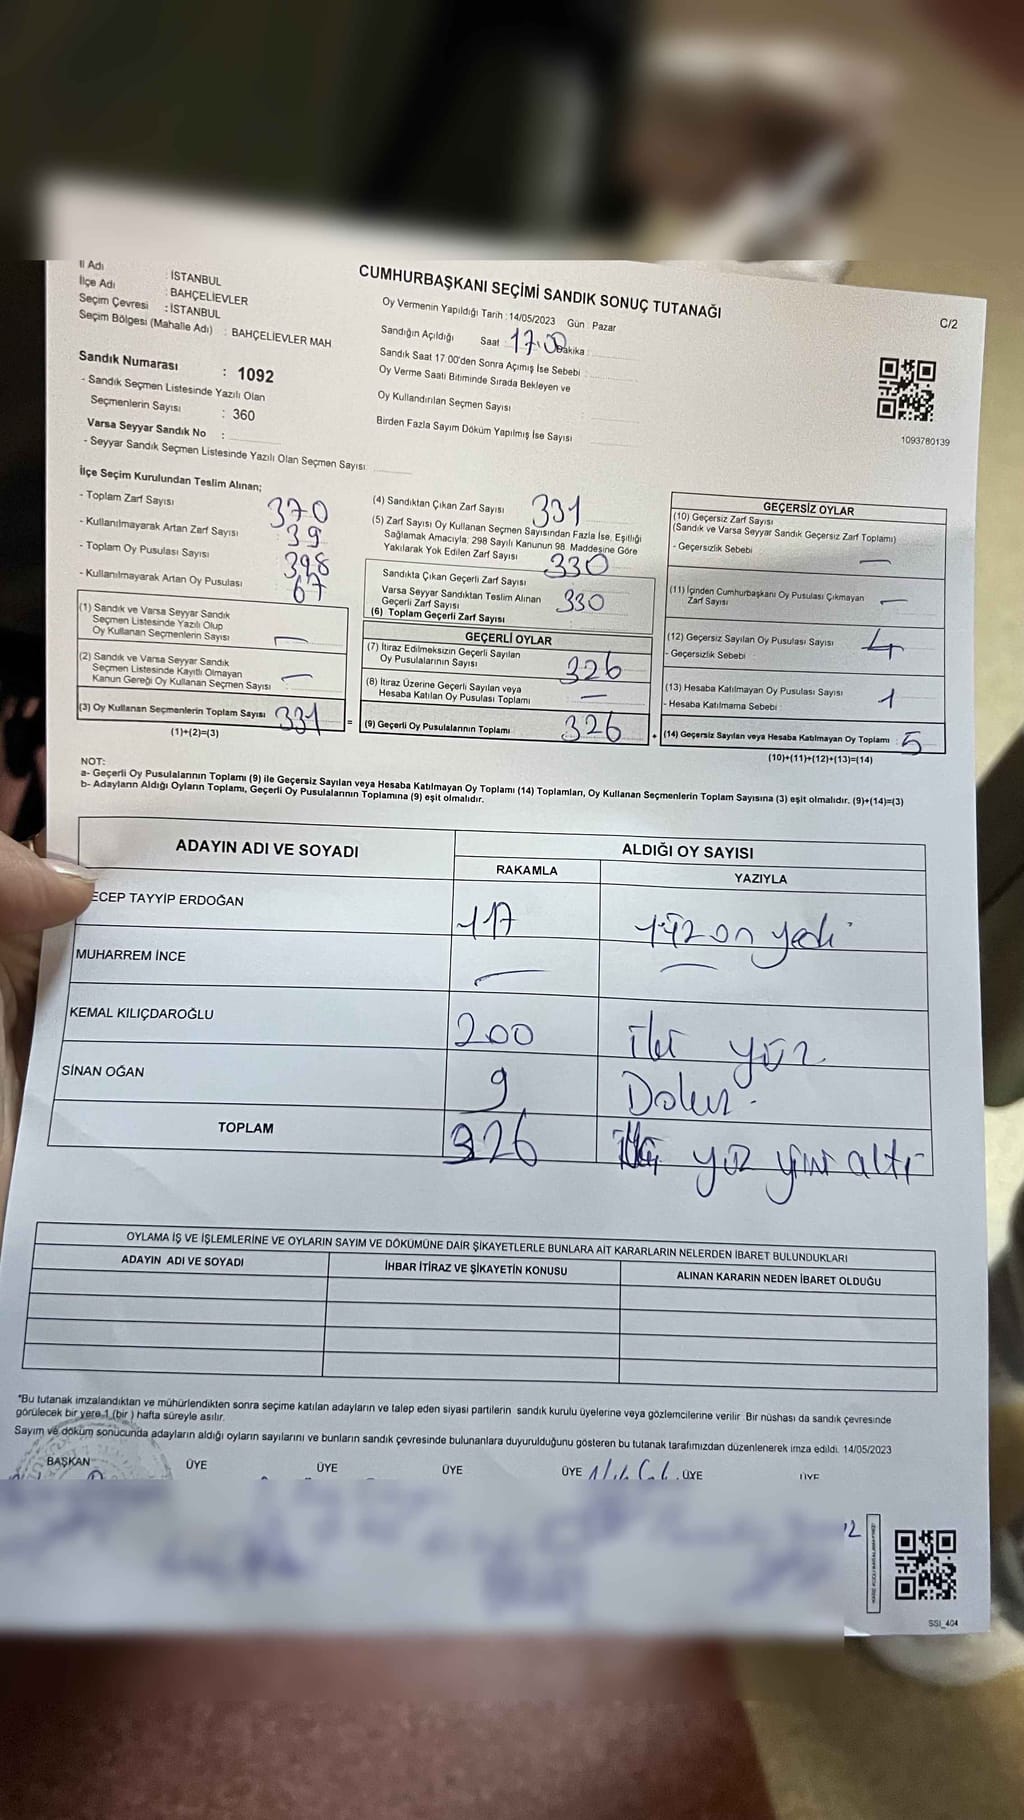 İl Adı : İSTANBUL
İlçe Adı : BAHÇELİEVLER
Seçim Çevresi : İSTANBUL
Seçim Bölgesi (Mahalle Adı) : BAHÇELİEVLER MAH
Sandık Numarası : 1092
- Sandık Seçmen Listesinde Yazılı Olan
Seçmenlerin Sayısı : 360
Varsa Seyyar Sandık No :
- Seyyar Sandık Seçmen Listesinde Yazılı Olan Seçmen Sayısı:
CUMHURBAŞKANI SEÇİMİ SANDIK SONUÇ TUTANAĞI
Oy Vermenin Yapıldığı Tarih : 14/05/2023 Gün : Pazar
Sandığın Açıldığı Saat : 17.00 Dakika :
Sandık Saat 17.00'den Sonra Açımış İse Sebebi :
Oy Verme Saati Bitiminde Sırada Bekleyen ve
Oy Kullandırılan Seçmen Sayısı
Birden Fazla Sayım Döküm Yapılmış İse Sayısı
C/2
1093780139
İlçe Seçim Kurulundan Teslim Alınan;
- Toplam Zarf Sayısı 370
- Kullanılmayarak Artan Zarf Sayısı 39
- Toplam Oy Pusulası Sayısı 398
- Kullanılmayarak Artan Oy Pusulası 67
(1) Sandık ve Varsa Seyyar Sandık
Seçmen Listesinde Yazılı Olup
Oy Kullanan Seçmenlerin Sayısı —
(2) Sandık ve Varsa Seyyar Sandık
Seçmen Listesinde Kayıtlı Olmayan
Kanun Gereği Oy Kullanan Seçmen Sayısı —
(3) Oy Kullanan Seçmenlerin Toplam Sayısı 331
(1)+(2)=(3)
(4) Sandıktan Çıkan Zarf Sayısı 331
(5) Zarf Sayısı Oy Kullanan Seçmen Sayısından Fazla İse, Eşitliği
Sağlamak Amacıyla, 298 Sayılı Kanunun 98. Maddesine Göre
Yakılarak Yok Edilen Zarf Sayısı 330
Sandıkta Çıkan Geçerli Zarf Sayısı
Varsa Seyyar Sandıktan Teslim Alınan
Geçerli Zarf Sayısı 330
(6) Toplam Geçerli Zarf Sayısı
GEÇERLİ OYLAR
(7) İtiraz Edilmeksizin Geçerli Sayılan
Oy Pusulalarının Sayısı 326
(8) İtiraz Üzerine Geçerli Sayılan veya
Hesaba Katılan Oy Pusulası Toplamı —
= (9) Geçerli Oy Pusulalarının Toplamı 326
GEÇERSİZ OYLAR
(10) Geçersiz Zarf Sayısı
(Sandık ve Varsa Seyyar Sandık Geçersiz Zarf Toplamı)
- Geçersizlik Sebebi —
(11) İçinden Cumhurbaşkanı Oy Pusulası Çıkmayan
Zarf Sayısı —
(12) Geçersiz Sayılan Oy Pusulası Sayısı 4
- Geçersizlik Sebebi
(13) Hesaba Katılmayan Oy Pusulası Sayısı 1
- Hesaba Katılmama Sebebi
+ (14) Geçersiz Sayılan veya Hesaba Katılmayan Oy Toplamı : 5
(10)+(11)+(12)+(13)=(14)
NOT:
a- Geçerli Oy Pusulalarının Toplamı (9) ile Geçersiz Sayılan veya Hesaba Katılmayan Oy Toplamı (14) Toplamları, Oy Kullanan Seçmenlerin Toplam Sayısına (3) eşit olmalıdır. (9)+(14)=(3)
b- Adayların Aldığı Oyların Toplamı, Geçerli Oy Pusulalarının Toplamına (9) eşit olmalıdır.
ADAYIN ADI VE SOYADI ALDIĞI OY SAYISI
RAKAMLA YAZIYLA
ECEP TAYYİP ERDOĞAN 117 yüz on yedi
MUHARREM İNCE — —
KEMAL KILIÇDAROĞLU 200 iki yüz
SİNAN OĞAN 9 Dokuz
TOPLAM 326 yüz yirmi altı
OYLAMA İŞ VE İŞLEMLERİNE VE OYLARIN SAYIM VE DÖKÜMÜNE DAİR ŞİKAYETLERLE BUNLARA AİT KARARLARIN NELERDEN İBARET BULUNDUKLARI
ADAYIN ADI VE SOYADI İHBAR İTİRAZ VE ŞİKAYETİN KONUSU ALINAN KARARIN NEDEN İBARET OLDUĞU
*Bu tutanak imzalandıktan ve mühürlendikten sonra seçime katılan adayların ve talep eden siyasi partilerin sandık kurulu üyelerine veya gözlemcilerine verilir. Bir nüshası da sandık çevresinde
görülecek bir yere 1 (bir) hafta süreyle asılır.
Sayım ve döküm sonucunda adayların aldığı oyların sayılarını ve bunların sandık çevresinde bulunanlara duyurulduğunu gösteren bu tutanak tarafımızdan düzenlenerek imza edildi. 14/05/2023
BAŞKAN ÜYE ÜYE ÜYE ÜYE ÜYE ÜYE
SSI_404